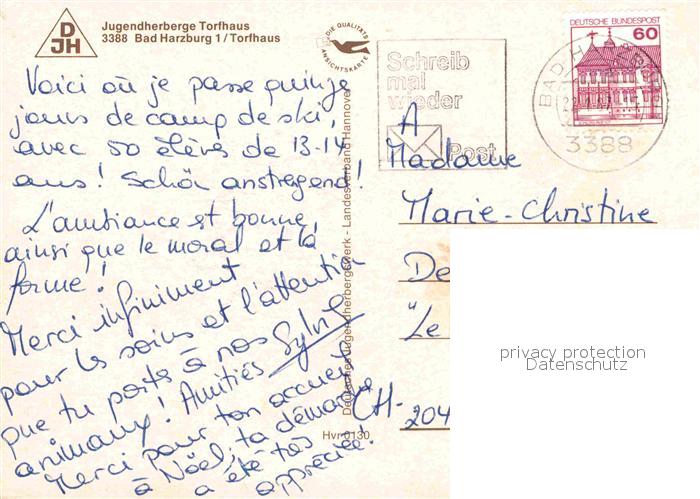 DJH
Jugendherberge Torfhaus
3388 Bad Harzburg 1 / Torfhaus
DIE QUALITÄTS ANSICHTSKARTE
Voici où je passe quinze
jours de camp de ski,
avec 50 élèves de 13-14
ans! Schön anstregend!
L'ambiance est bonne,
ainsi que le moral et la
forme!
Merci infiniment
pour les soins et l'attention
que tu portes à nos
animaux! Amitiés Sylvie
Merci pour ton accueil
à Noël; ta démarche
a été très
appréciée!
Deutsches Jugendherbergswerk - Landesverband Hannover
Hvr 0130
Schreib
mal
wieder
Post
BAD HA
3388
DEUTSCHE BUNDESPOST
60
A
Madame
Marie-Christine
De
"Le
CH-204
privacy protection
Datenschutz